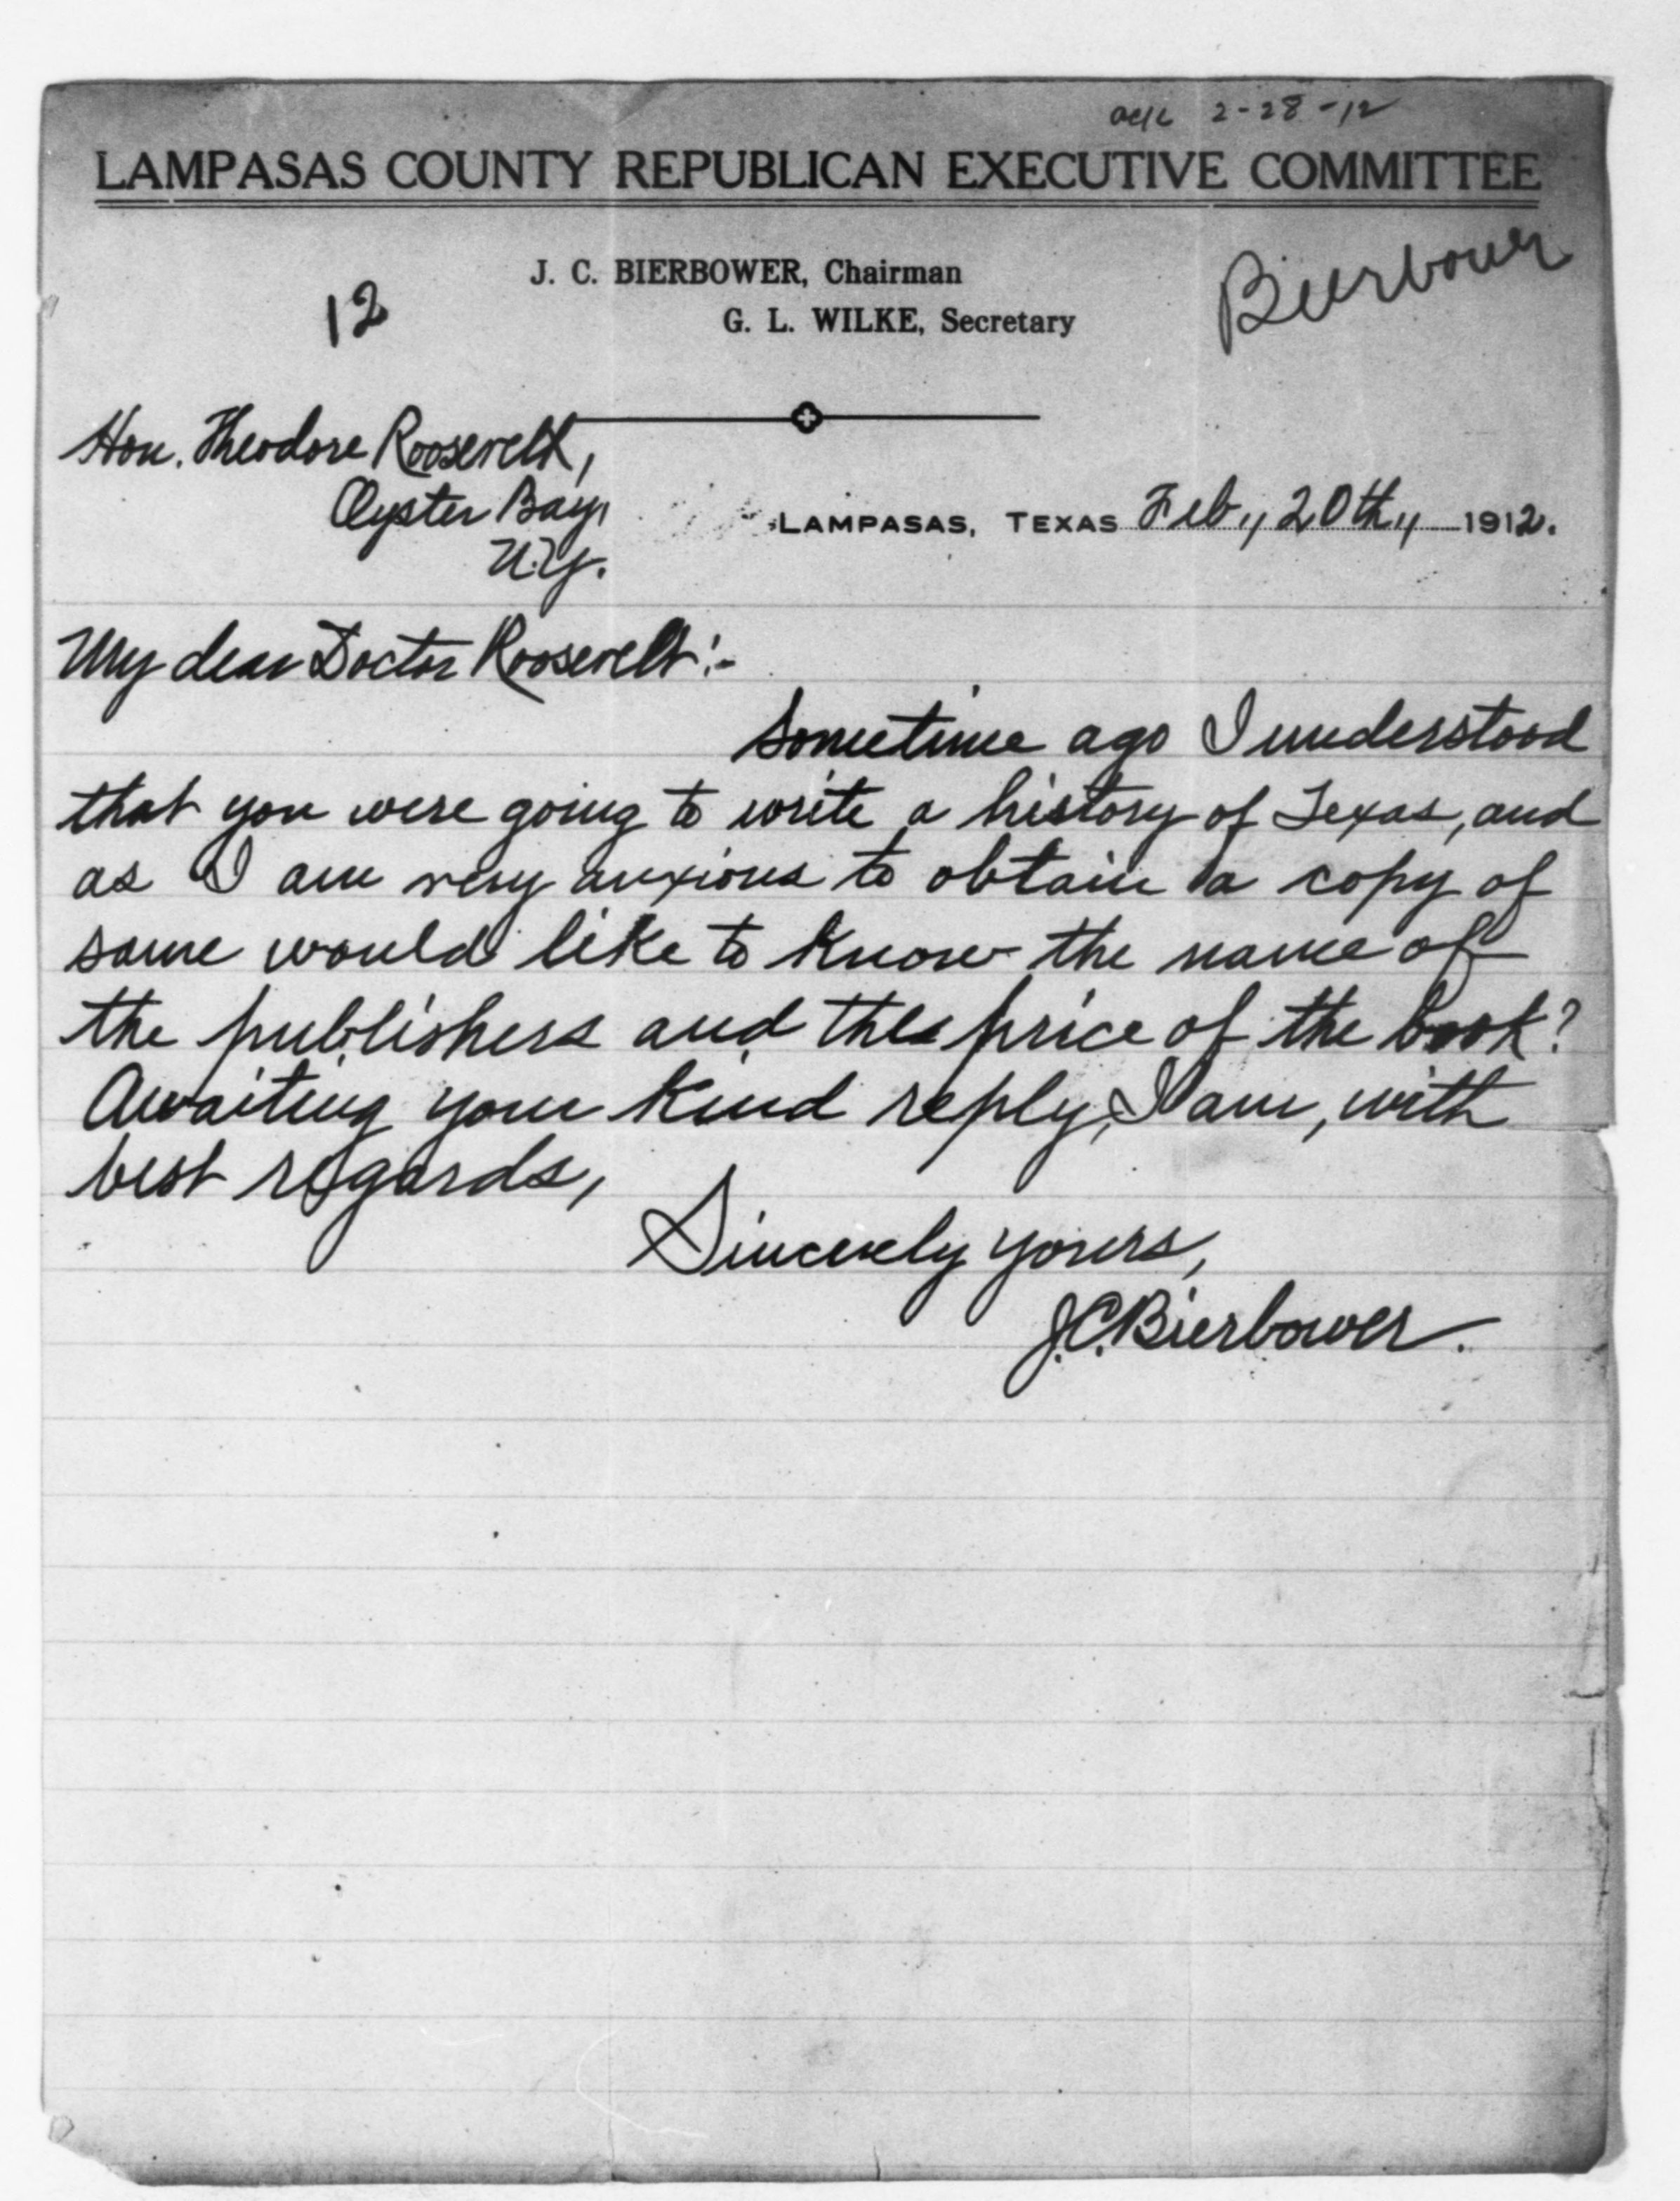 ack 2-28-12
LAMPASAS COUNTY REPUBLICAN EXECUTIVE COMMITTEE
J. C. BIERBOWER, Chairman
Bierbower
12
G. L. WILKE, Secretary
Hon. Theodore Roosevelt,
Oyster Bay,
N.Y.
LAMPASAS, TEXAS Feb., 20th, 1912.
My dear Doctor Roosevelt:-
Sometime ago I understood
that you were going to write a history of Texas, and
as I am very anxious to obtain a copy of
same would like to know the name of
the publishers and the price of the book?
Awaiting your kind reply, I am, with
best regards,
Sincerely yours,
J.C. Bierbower.